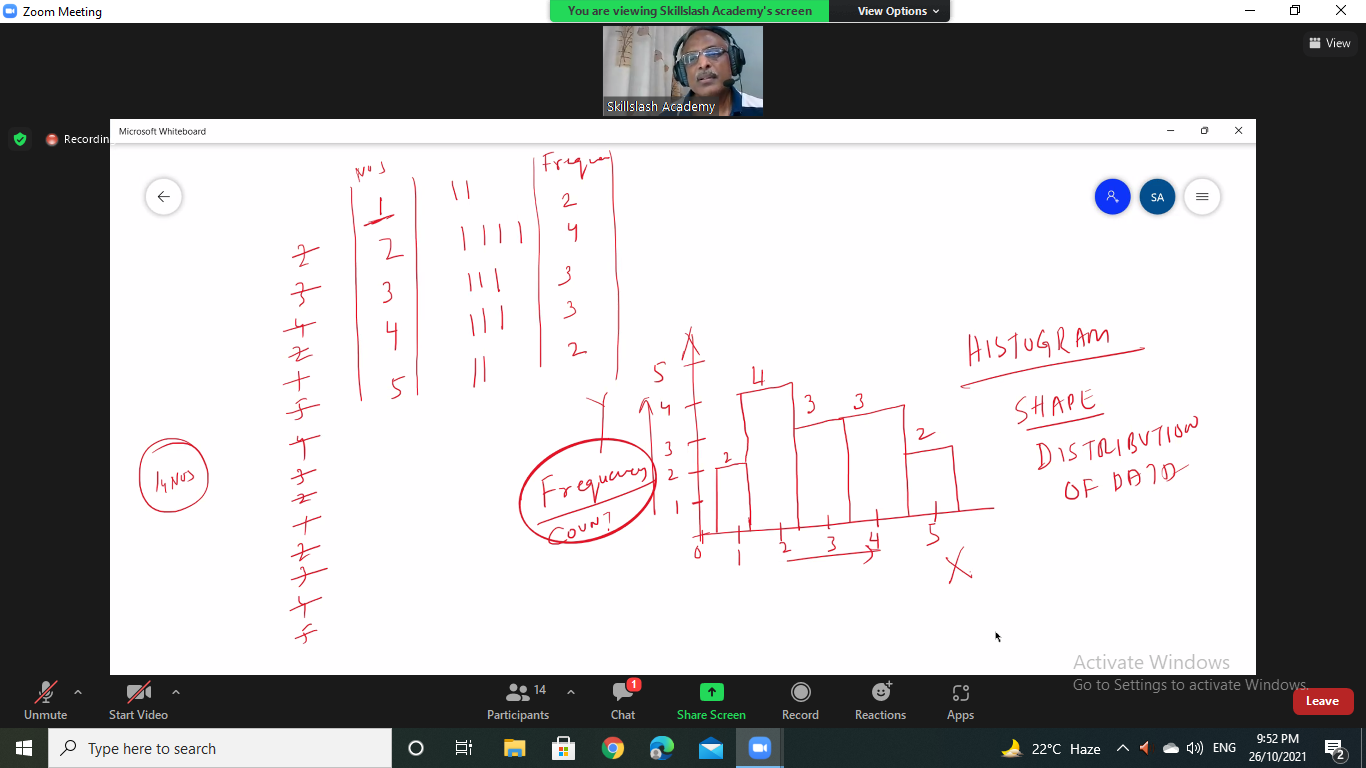 Zoom Meeting
You are viewing Skillslash Academy's screen
View Options
View
Skillslash Academy
Recording
Microsoft Whiteboard
SA
NOS
Freque
1 || 2
2 |||| 4
3 ||| 3
4 ||| 3
5 || 2
2
3
4
2
1
5
4
3
2
1
2
3
4
5
14 NOS
Y
Frequency
COUNT
5
4
3
2
1
0
2
4
3
3
2
1
2
3
4
5
X
HISTOGRAM
SHAPE
DISTRIBUTION
OF DATA
Activate Windows
Go to Settings to activate Windows.
Unmute
Start Video
14
Participants
1
Chat
Share Screen
Record
Reactions
Apps
Leave
Type here to search
22°C Haze
ENG
9:52 PM
26/10/2021
2